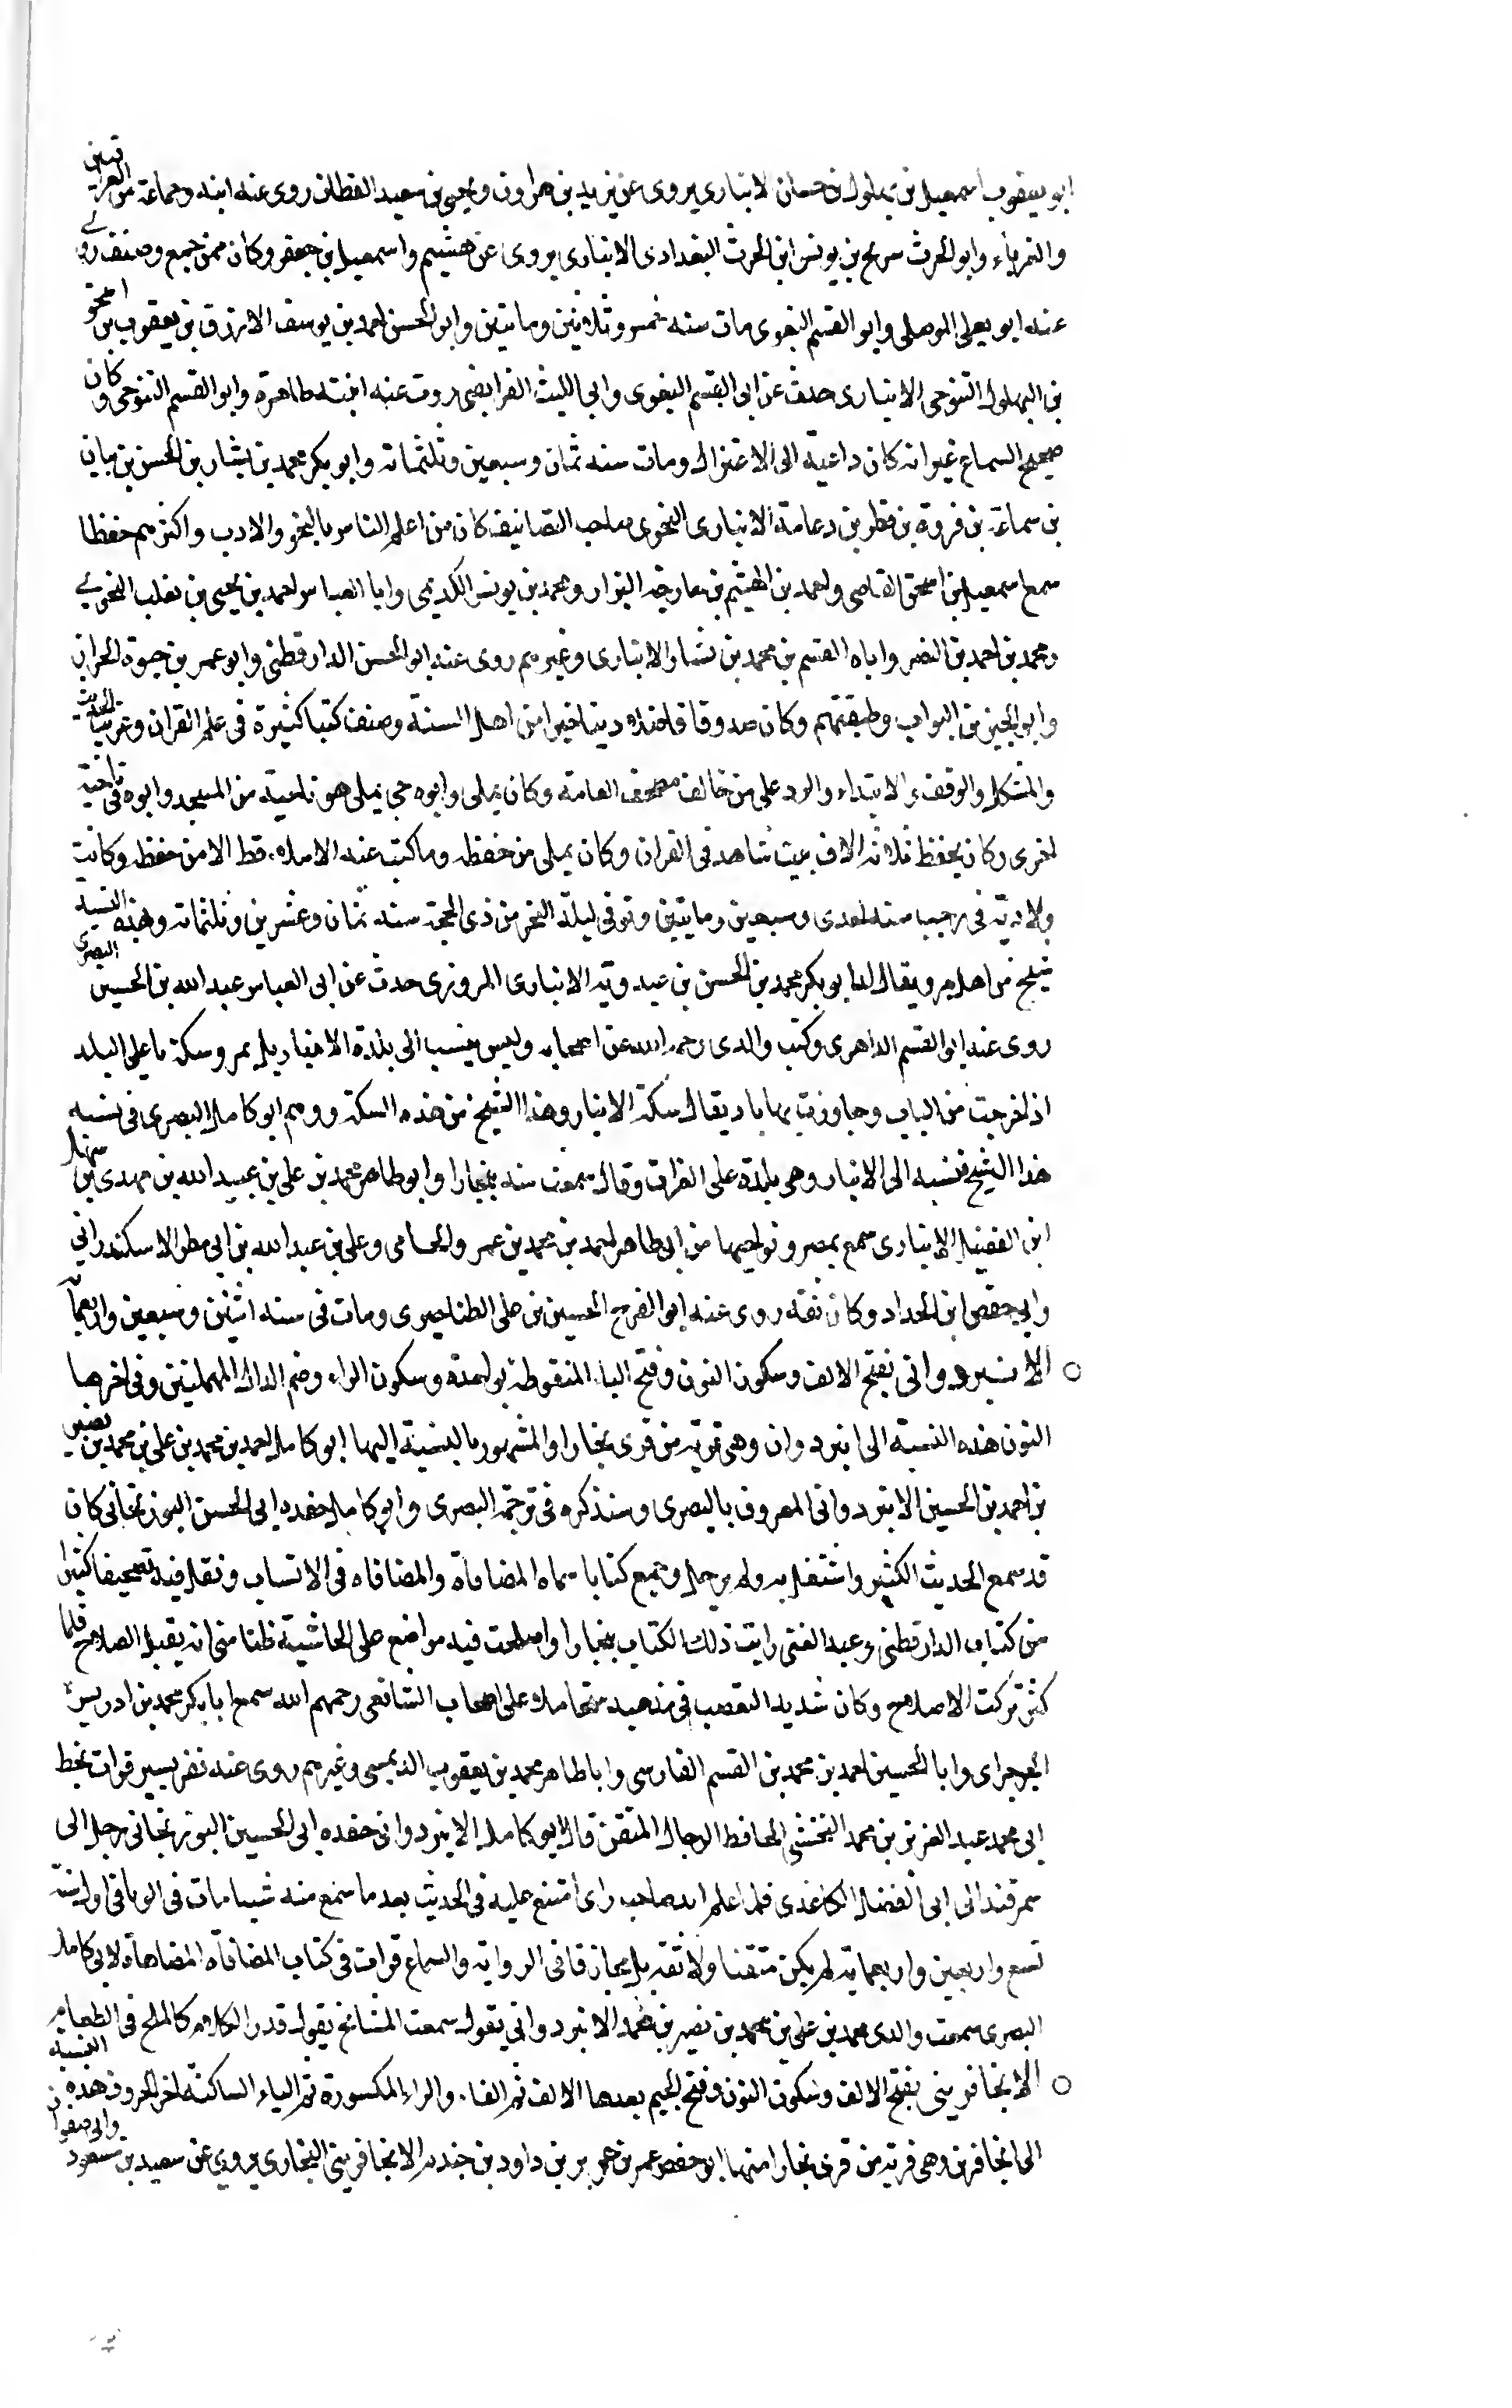 ابو يعقوب اسمعيل بن بهلول بن حسان الانبارى يروى عن يزيد بن هرون ويحيى بن سعيد القطان روى عنه ابنه وجماعة من العراقيين
والغرباء وابو الحرث سريج بن يونس ابن الحرث البغدادى الانبارى يروى عن هشيم واسمعيل بن جعفر وكان ممن جمع وصنف روى
عنه ابو يعلى الموصلى وابو القسم البغوى مات سنه خمس وثلاثين وماتين وابو الحسن احمد بن يوسف الازرق بن يعقوب بن اسحق
بن البهلول التنوخى الانبارى حدث عن ابى القسم البغوى وابى الليث الفرايضى روت عنه ابنته طاهرة وابو القسم التنوخى وكان
صحيح السماع غير انه كان داعية الى الاعتزال ومات سنه ثمان وسبعين وثلثماته وابو بكر محمد بن بشار بن الحسن بن بيان
بن سماعة بن فروة بن قطن بن دعامة الانبارى النحوى صاحب التصانيف كان من اعلم الناس بالنحو والادب واكثرهم حفظا
سمع اسمعيل بن اسحق القاضى واحمد بن الهيثم بن خارجه البزار ومحمد بن يونس الكديمى وابا العباس احمد بن يحيى بن ثعلب النحوى
ومحمد بن احمد بن النضر واباه القسم بن محمد بن بشار الانبارى وغيرهم روى عنه ابو الحسن الدارقطنى وابو عمر بن حيوة الخزاز
وابو الحسين بن البواب وطبقتهم وكان صدوقا فاضلا دينا خيرا من اهل السنة وصنف كتبا كثيرة فى علم القران وغريب الحديث
والمشكل والوقف والابتداء والرد على من خالف مصحف العامة وكان يملى وابوه حى يملى هو ناحية من المسجد وابوه فى ناحية
اخرى وكان يحفظ ثلاثه الاف بيت شاهد فى القران وكان يملى من حفظه وما كتب عنه الاملاء قط الا من حفظه وكانت
ولادته فى رجب سنه احدى وسبعين وماتين وتوفى ليلة النحر من ذى الحجة سنه ثمان وعشرين وثلثماته وبهذه النسبة
شيخ من اهل مرو يقال له ابو بكر محمد بن الحسن بن عبدويه الانبارى المروزى حدث عن ابى العباس عبد الله بن الحسين البصرى
روى عنه ابو القسم الزاهرى وكتب والدى رحمه الله عن اصحابه وليس ينسب الى بلدة الانبار بل بمرو سكة باعلى البلد
اذا خرجت من الباب وجاوزت بها باد يقال سكة الانبار وهذا الشيخ من هذه السكة ووهم ابو كامل البصرى فى نسبه
هذا الشيخ فنسبه الى الانبار وهى بلدة على الفرات وقال سمعت منه ببخارا وابو طاهر محمد بن على بن عبيد الله بن مهدى بن سهل
ابن الفضيل الانبارى سمع بمصر ونواحيها من ابى طاهر احمد بن محمد بن عمر والخامى وعلى بن عبد الله بن ابى مطر الاسكندرانى
وابى جعفر ابن الحداد وكان ثقه روى عنه ابو الفرج الحسين بن على الطناجيرى ومات فى سنه اثنين وسبعين واربعمآ
○ الانبردوانى بفتح الالف وسكون النون وفتح الباء المنقوطة بواحدة وسكون الراء وضم الدال المهملتين وفى اخرها
النون هذه النسبة الى انبردوان وهى قرية من قرى بخارا والمشهور بالنسبة اليها ابو كامل احمد بن محمد بن على بن محمد بن بصير
بن احمد بن الحسين الانبردوانى المعروف بالبصرى وسنذكره فى ترجمة البصرى وابو كامل حفده ابى الحسن البوزنجانى كان
قد سمع الحديث الكثير واشتغل به وله رحل وجمع كتابا سماه المضافاة والمضافاه فى الانساب ونقل فيه تصحيفا كثيرا
من كتاب الدارقطنى وعبد الغنى رايت ذلك الكتاب ببخارا واصلحت فيه مواضع على الحاشية ظنا منى انه يقبل الصلاح فلما
كثر تركت الاصلاح وكان شديد التعصب فى مذهبه متحاملا على اصحاب الشافعى رحمهم الله سمع ابا بكر محمد بن ادريس
الجرجراى وابا الحسين احمد بن محمد بن القسم الفارسى وابا طاهر محمد بن يعقوب وغيرهم روى عنه نفر يسير قرات بخط
ابى محمد عبد العزيز بن محمد النخشبى الحافظ الرحال المتقن قال ابو كامل الانبردوانى حفده ابى الحسين البوزنجانى رحل الى
سمرقند الى ابى الفضل الكاغدى فلما علم انه صاحب راى امتنع عليه فى الحديث بعد ما سمع منه شيا مات فى الوبا فى اول سنة
تسع واربعين واربعماية لم يكن متقنا ولا ثقة بل مجازفا فى الرواية والسماع قرات فى كتاب المضافاة المضاهاة لابى كامل
البصرى سمعت والدى محمد بن على بن محمد بن نصير بن محمد الانبردوانى يقول سمعت المشايخ يقول قدر الكلام كالملح فى الطعام
○ الانجافرينى بفتح الالف وسكون النون وفتح الجيم بعدها الالف ثم الفا والراء المكسورة ثم الياء الساكنة اخر الحروف هذه النسبة
الى انجافرين وهى قرية من قرى بخارا منها ابو حفص عمر بن جرير بن داود بن خيدم الانجافرينى البخارى يروى عن سعيد بن مسعود وابى صفوان